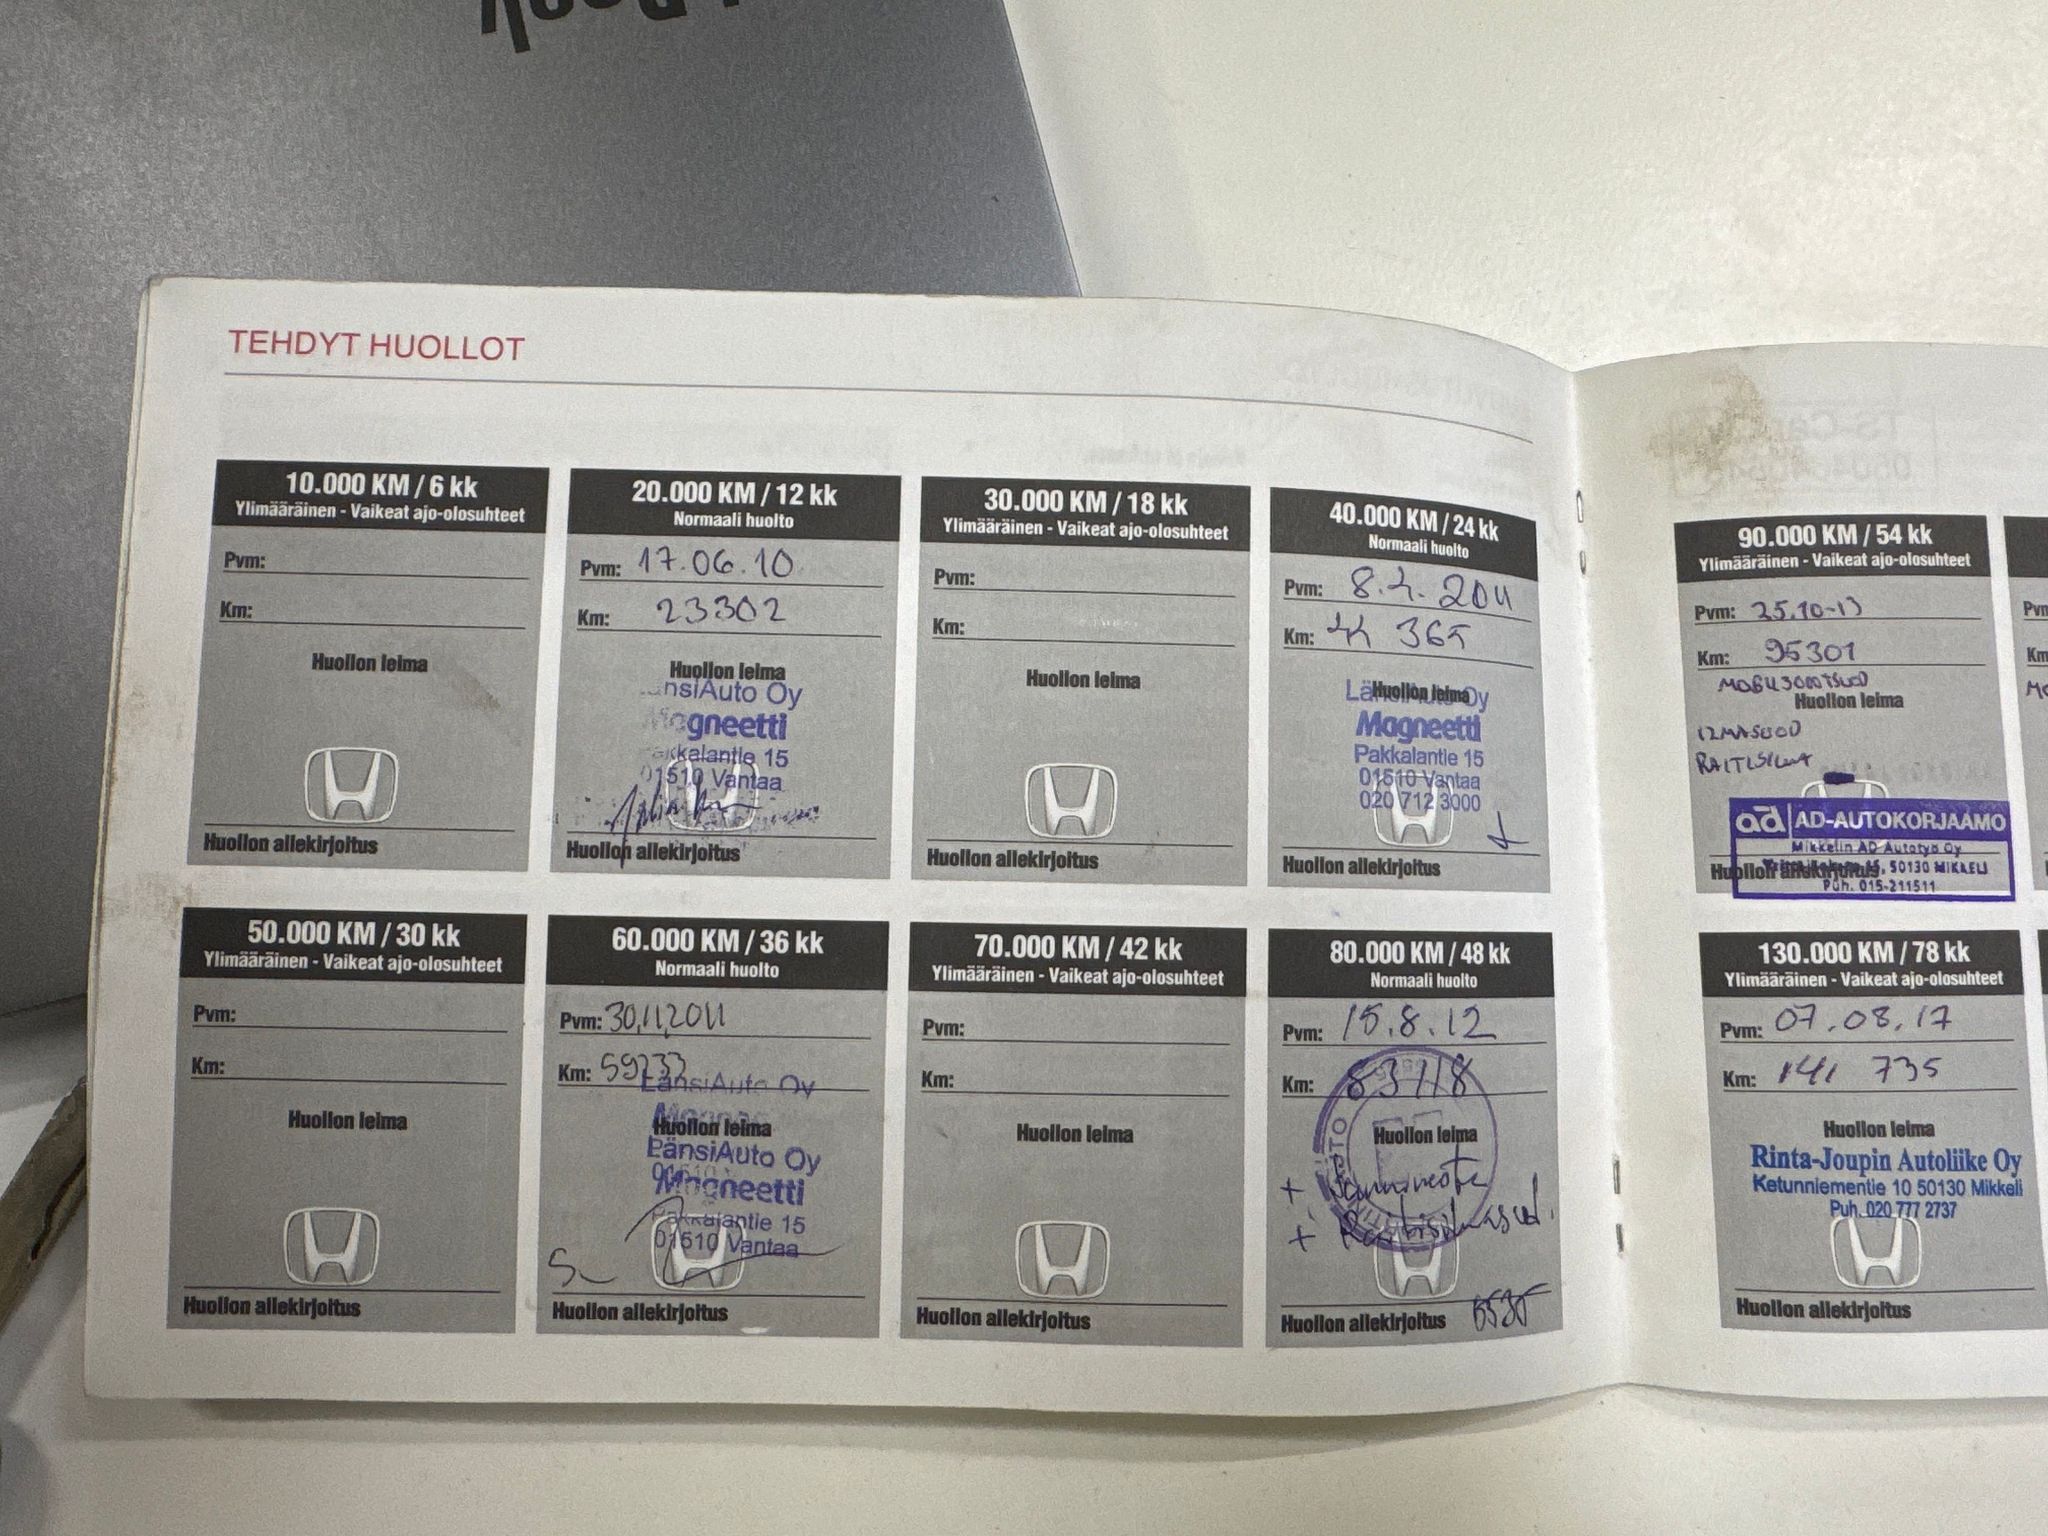 TEHDYT HUOLLOT
10.000 KM / 6 kk
Ylimääräinen - Vaikeat ajo-olosuhteet
Pvm:
Km:
Huollon leima
Huollon allekirjoitus
20.000 KM / 12 kk
Normaali huolto
Pvm: 17.06.10
Km: 23302
Huollon leima
LänsiAuto Oy
Magneetti
Pakkalantie 15
01510 Vantaa
Huollon allekirjoitus
30.000 KM / 18 kk
Ylimääräinen - Vaikeat ajo-olosuhteet
Pvm:
Km:
Huollon leima
Huollon allekirjoitus
40.000 KM / 24 kk
Normaali huolto
Pvm: 2011
Km: 365
Huollon leima
LänsiAuto Oy
Magneetti
Pakkalantie 15
01510 Vantaa
020 712 3000
Huollon allekirjoitus
50.000 KM / 30 kk
Ylimääräinen - Vaikeat ajo-olosuhteet
Pvm:
Km:
Huollon leima
Huollon allekirjoitus
60.000 KM / 36 kk
Normaali huolto
Pvm: 30.11.2011
Km: 59233
LänsiAuto Oy
Huollon leima
LänsiAuto Oy
Magneetti
Pakkalantie 15
01510 Vantaa
Huollon allekirjoitus
70.000 KM / 42 kk
Ylimääräinen - Vaikeat ajo-olosuhteet
Pvm:
Km:
Huollon leima
Huollon allekirjoitus
80.000 KM / 48 kk
Normaali huolto
Pvm: 15.8.12
Km: 83118
Huollon leima
Huollon allekirjoitus
90.000 KM / 54 kk
Ylimääräinen - Vaikeat ajo-olosuhteet
Pvm: 25.10-13
Km: 95301
Huollon leima
ad AD-AUTOKORJAAMO
Mikkelin AD Autotyö Oy
50130 MIKKELI
Puh. 015-211511
Huollon allekirjoitus
130.000 KM / 78 kk
Ylimääräinen - Vaikeat ajo-olosuhteet
Pvm: 07.08.17
Km: 141 735
Huollon leima
Rinta-Joupin Autoliike Oy
Ketunniementie 10 50130 Mikkeli
Puh. 020 777 2737
Huollon allekirjoitus